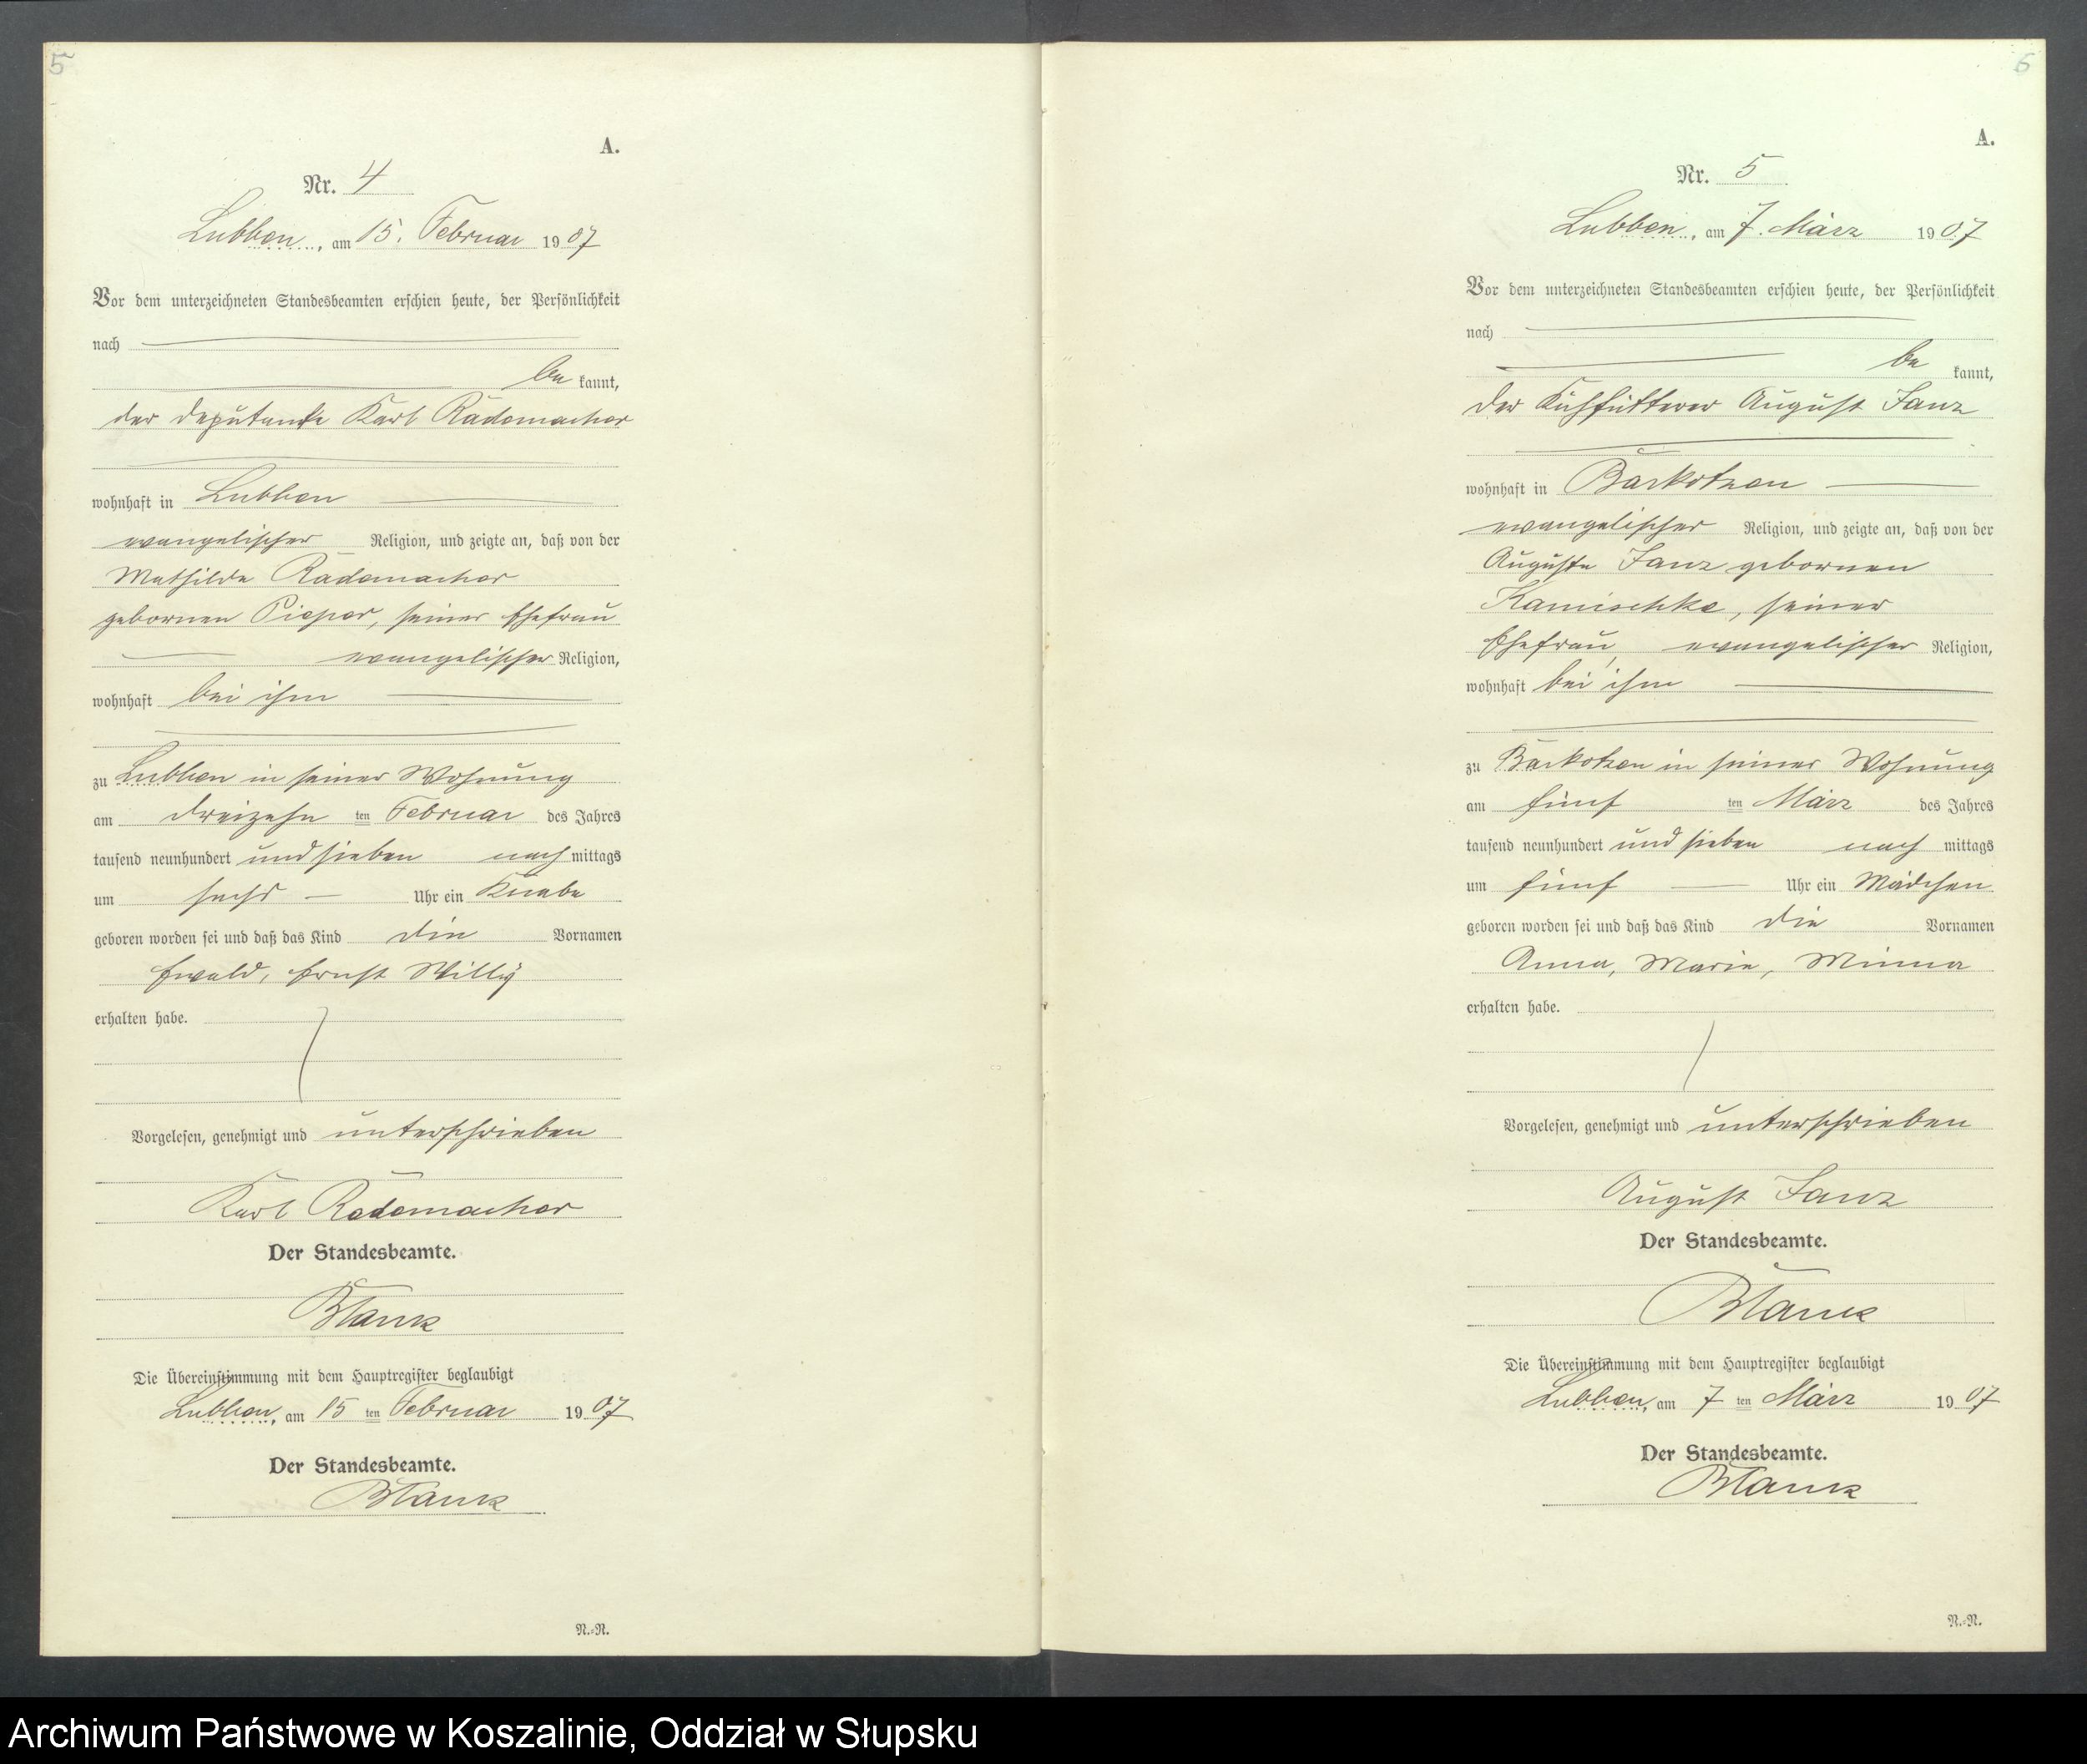 5
A.
Nr. 4
Lubben, am 15. Februar 1907
Vor dem unterzeichneten Standesbeamten erschien heute, der Persönlichkeit
nach
be kannt,
der Deputant Karl Rademacher
wohnhaft in Lubben
evangelischer Religion, und zeigte an, daß von der
Mathilde Rademacher
gebornen Pieper, seiner Ehefrau
evangelischer Religion,
wohnhaft bei ihm
zu Lubben in seiner Wohnung
am dreizehn ten Februar des Jahres
tausend neunhundert und sieben nach mittags
um sechs Uhr ein Knabe
geboren worden sei und daß das Kind die Vornamen
Ewald, Ernst Willy
erhalten habe.
Vorgelesen, genehmigt und unterschrieben
Karl Rademacher
Der Standesbeamte.
Blank
Die Übereinstimmung mit dem Hauptregister beglaubigt
Lubben, am 15 ten Februar 1907
Der Standesbeamte.
Blank
N.-N.
6
A.
Nr. 5
Lubben, am 7. März 1907
Vor dem unterzeichneten Standesbeamten erschien heute, der Persönlichkeit
nach
be kannt,
der Kuhfütterer August Janz
wohnhaft in Barkotzen
evangelischer Religion, und zeigte an, daß von der
Auguste Janz gebornen
Kamischke, seiner
Ehefrau, evangelischer Religion,
wohnhaft bei ihm
zu Barkotzen in seiner Wohnung
am fünf ten März des Jahres
tausend neunhundert und sieben nach mittags
um fünf Uhr ein Mädchen
geboren worden sei und daß das Kind die Vornamen
Anna, Marie, Minna
erhalten habe.
Vorgelesen, genehmigt und unterschrieben
August Janz
Der Standesbeamte.
Blank
Die Übereinstimmung mit dem Hauptregister beglaubigt
Lubben, am 7 ten März 1907
Der Standesbeamte.
Blank
N.-N.
Archiwum Państwowe w Koszalinie, Oddział w Słupsku